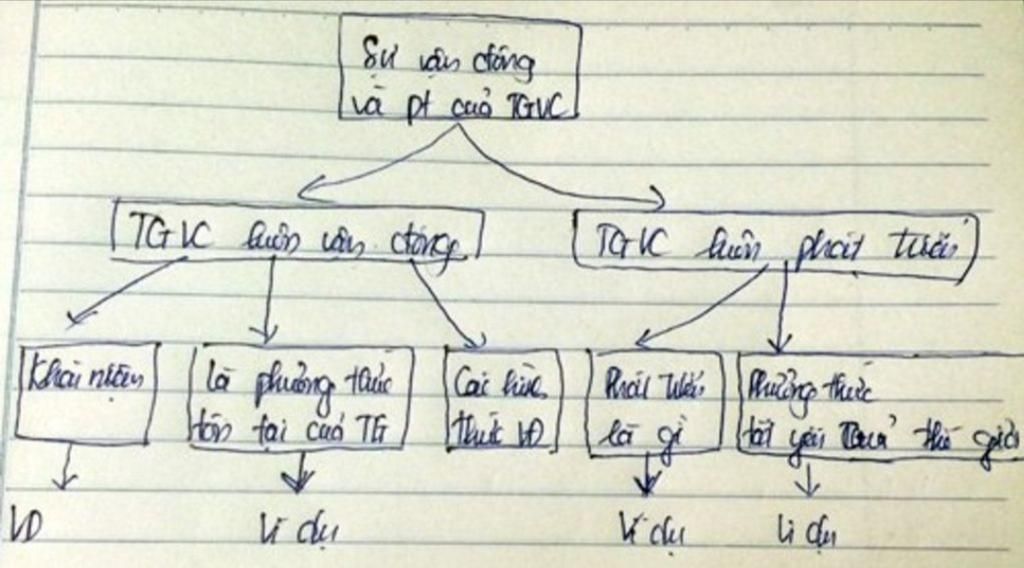 Sự vận động
và pt của TGVC
TGVC luôn vận động
TGVC luôn phát triển
Khái niệm
Là phương thức
tồn tại của TG
Các hình
thức VĐ
Phát triển
là gì
Phương thức
tất yếu của thế giới
VD
Ví dụ
Ví dụ
Ví dụ